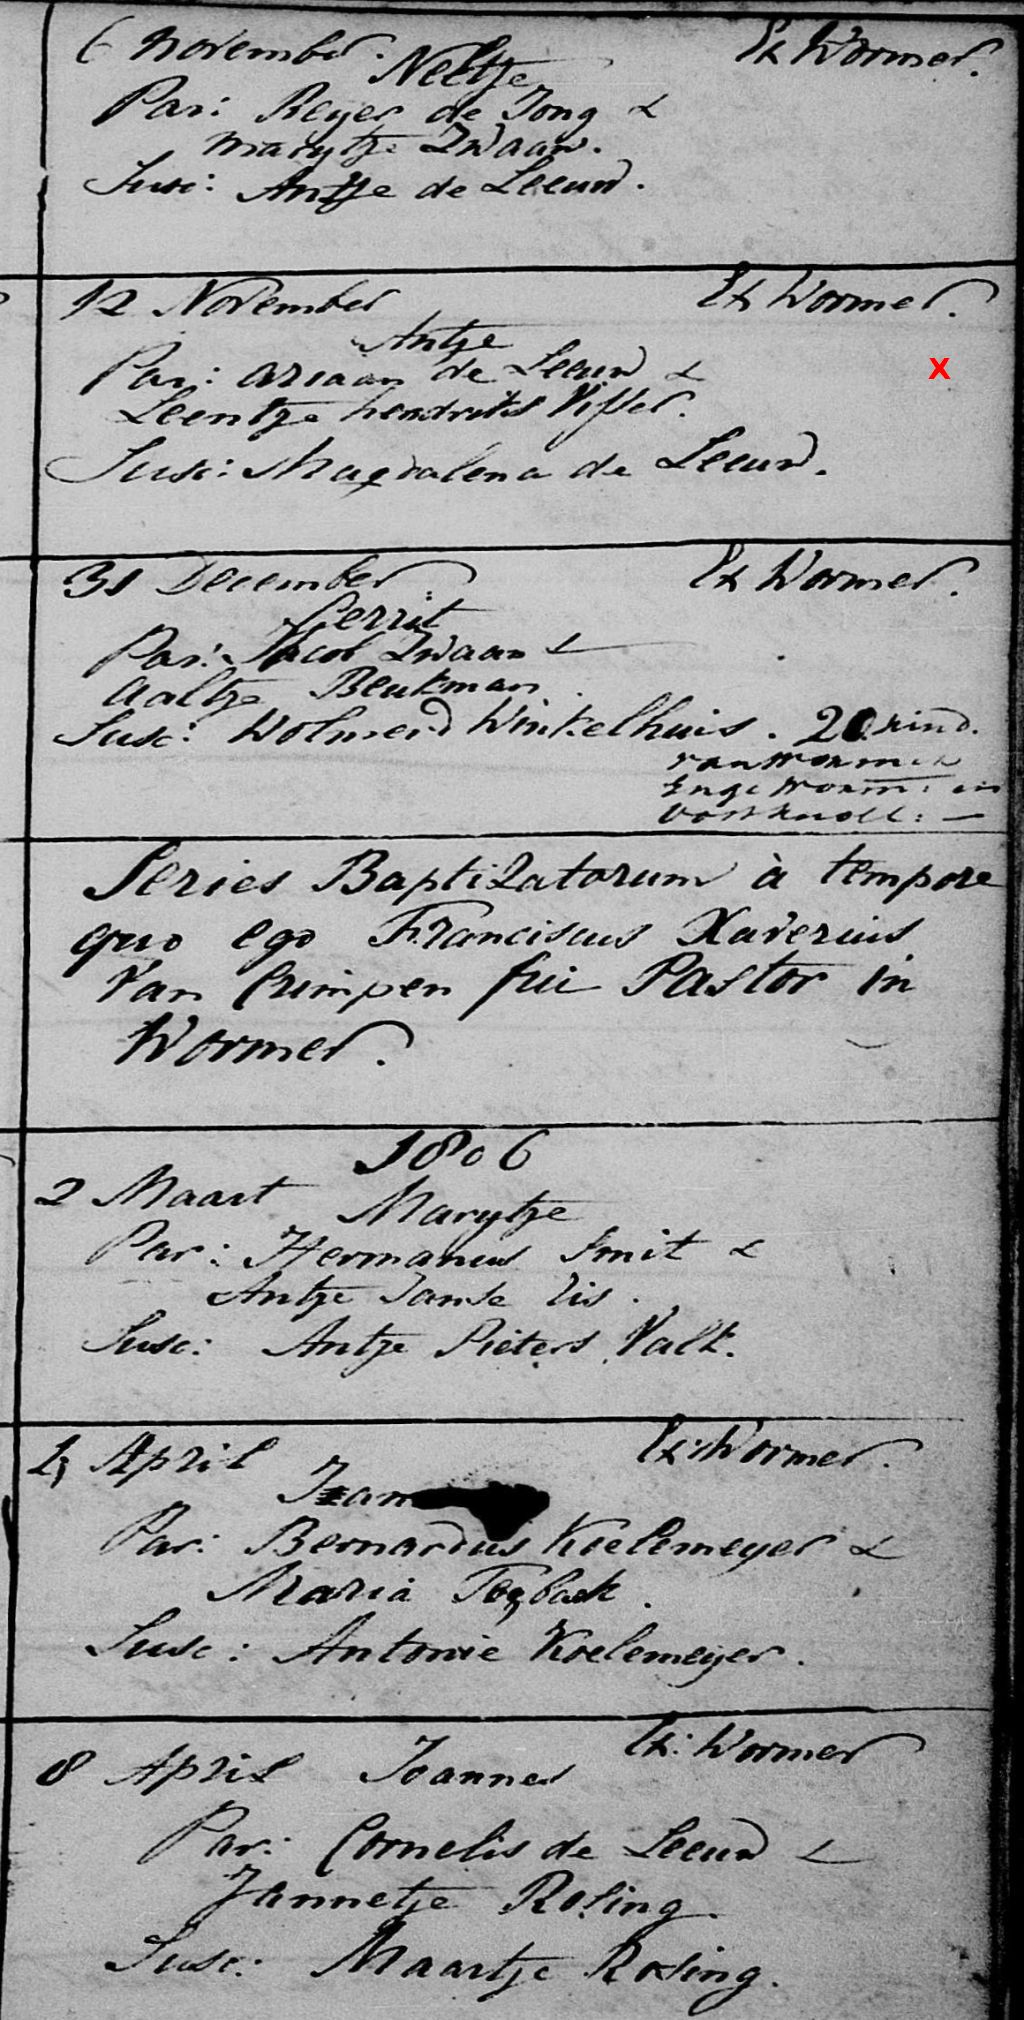 6 November. Ex Wormer.
Neeltje
Par: Reyer de Jong &
Marytje Zwaan.
Susc: Antje de Leeuw.
12 November Ex Wormer.
Antje
Par: Ariaan de Leeuw &
Leentje hendriks Visser.
Susc: Magdalena de Leeuw.
X
31 December Ex Wormer.
Gerrit
Par: Jacob Zwaan &
Aaltje Beukman.
Susc: Wolmerd Winkelhuis. 20 kind.
van Wormer
Enge Worm: en
Oostknoll: —
Series Baptizatorum à tempore
quo ego Franciscus Xaverius
Van Crimpen fui Pastor in
Wormer.
1806
2 Maart Marytje
Par: Hermanus Smit &
Antje Janse Lis.
Susc: Antje Pieters Valk.
4 April Ex: Wormer.
Par: Bernardus Koelemeyer &
Maria
Susc: Antonie Koelemeyer.
8 April Joannes Ex: Wormer
Par: Cornelis de Leeuw &
Jannetje Rosing.
Susc: Maartje Rosing.